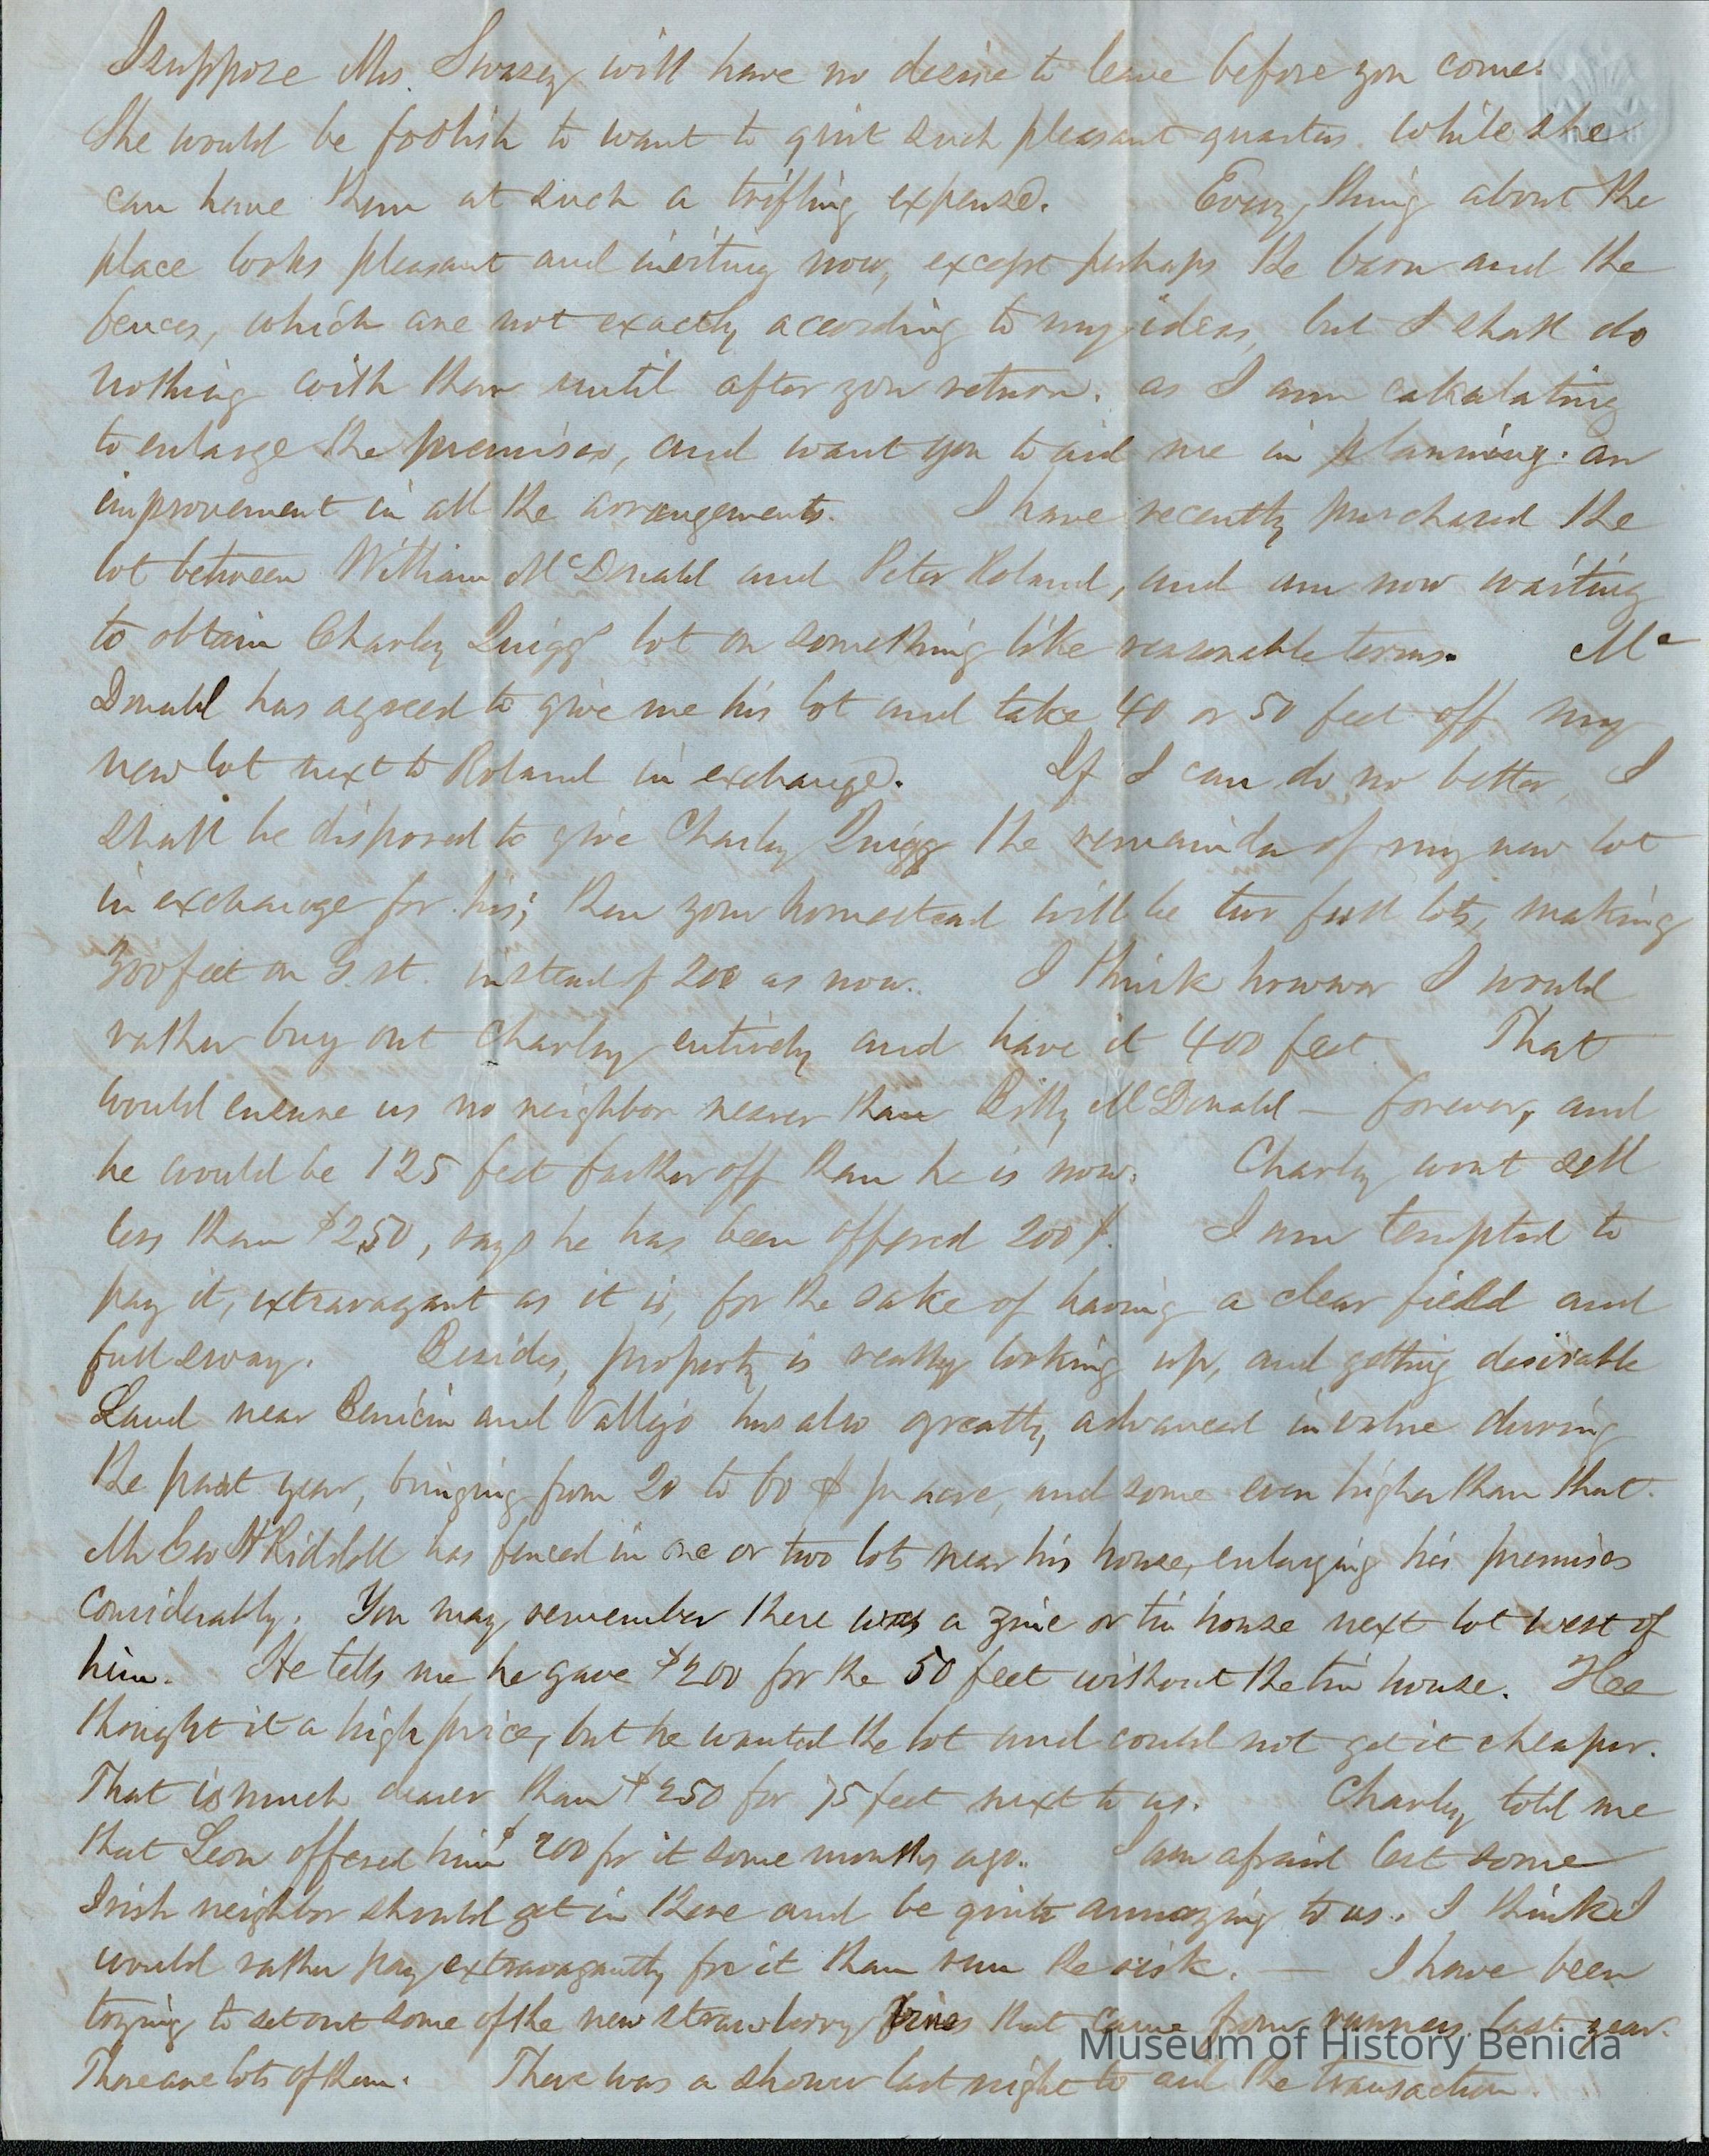 I suppose Mrs. Swasey will have no desire to leave before you come.
She would be foolish to want to quit such pleasant quarters while she
can have them at such a trifling expense. Every thing about the
place looks pleasant and inviting now, except perhaps the barn and the
fences, which are not exactly according to my ideas, but I shall do
nothing with them until after you return. as I am calculating
to enlarge the premises, and want you to aid me in planning an
improvement in all the arrangements. I have recently purchased the
lot between William McDonald and Peter Roland, and am now waiting
to obtain Charley Quigg lot on something like reasonable terms. Mc
Donald has agreed to give me his lot and take 40 or 50 feet off my
new lot next to Roland in exchange. If I can do no better, I
shall be disposed to give Charley Quigg the remainder of my new lot
in exchange for his; then your homestead will be two full lots, making
300 feet on G. st. instead of 200 as now. I think however I would
rather buy out Charley entirely and have it 400 feet. That
would ensure us no neighbor nearer than Billy McDonald — forever, and
he would be 125 feet farther off than he is now. Charley wont sell
less than $250, says he has been offered 200$. I am tempted to
pay it, extravagant as it is, for the sake of having a clear field and
full sway. Besides, property is really looking up, and getting desirable
Land near Benicia and Vallejo has also greatly advanced in value during
the past year, bringing from 20 to 60 $ pr acre, and some even higher than that.
Mr Geo H Riddell has fenced in one or two lots near his house, enlarging his premises
considerably. You may remember there was a zinc or tin house next lot west of
him. He tells me he gave $200 for the 50 feet without the tin house. Hee
thought it a high price, but he wanted the lot and could not get it cheaper.
That is much dearer than $250 for 75 feet next to us. Charley told me
that Leon offered him $200 for it some months ago. I am afraid lest some
Irish neighbor should get in there and be quite annoying to us. I think I
would rather pay extravagantly for it than run the risk. — I have been
trying to set out some of the new strawberry vines that came from runners last year.
There are lots of them. There was a shower last night to aid the transaction.
Museum of History Benicia